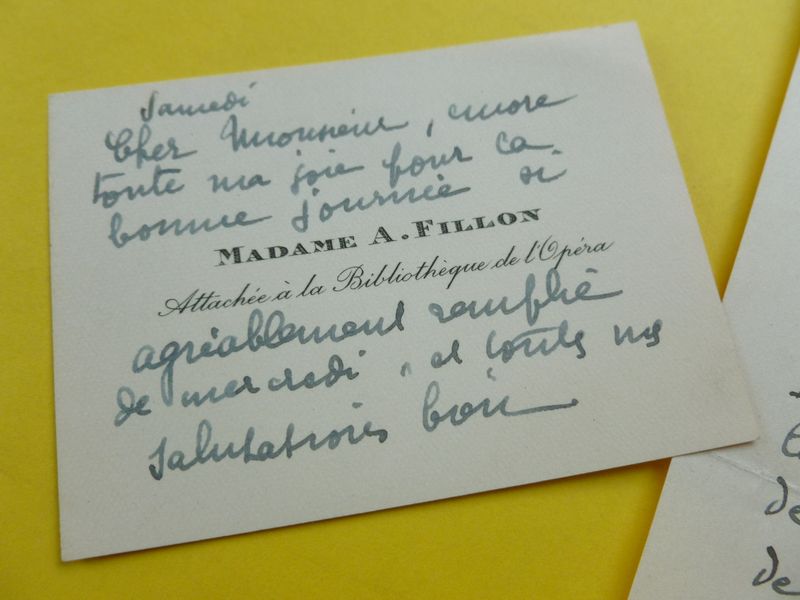 Samedi
Cher Monsieur, encore
toute ma joie pour ca
bonne journée si
MADAME A. FILLON
Attachée à la Bibliothèque de l'Opéra
agréablement remplie
de mercredi, et toutes mes
salutations bien
de
de